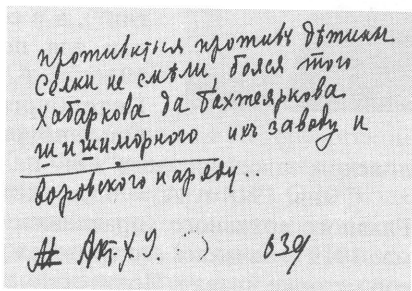 противиться противъ дѣтины
Сенки не смѣли, бояся того
Хабаркова да Бахтеяркова
шишиморного ихъ заводу и
воровского наряду..
Акт. Х. У. 630